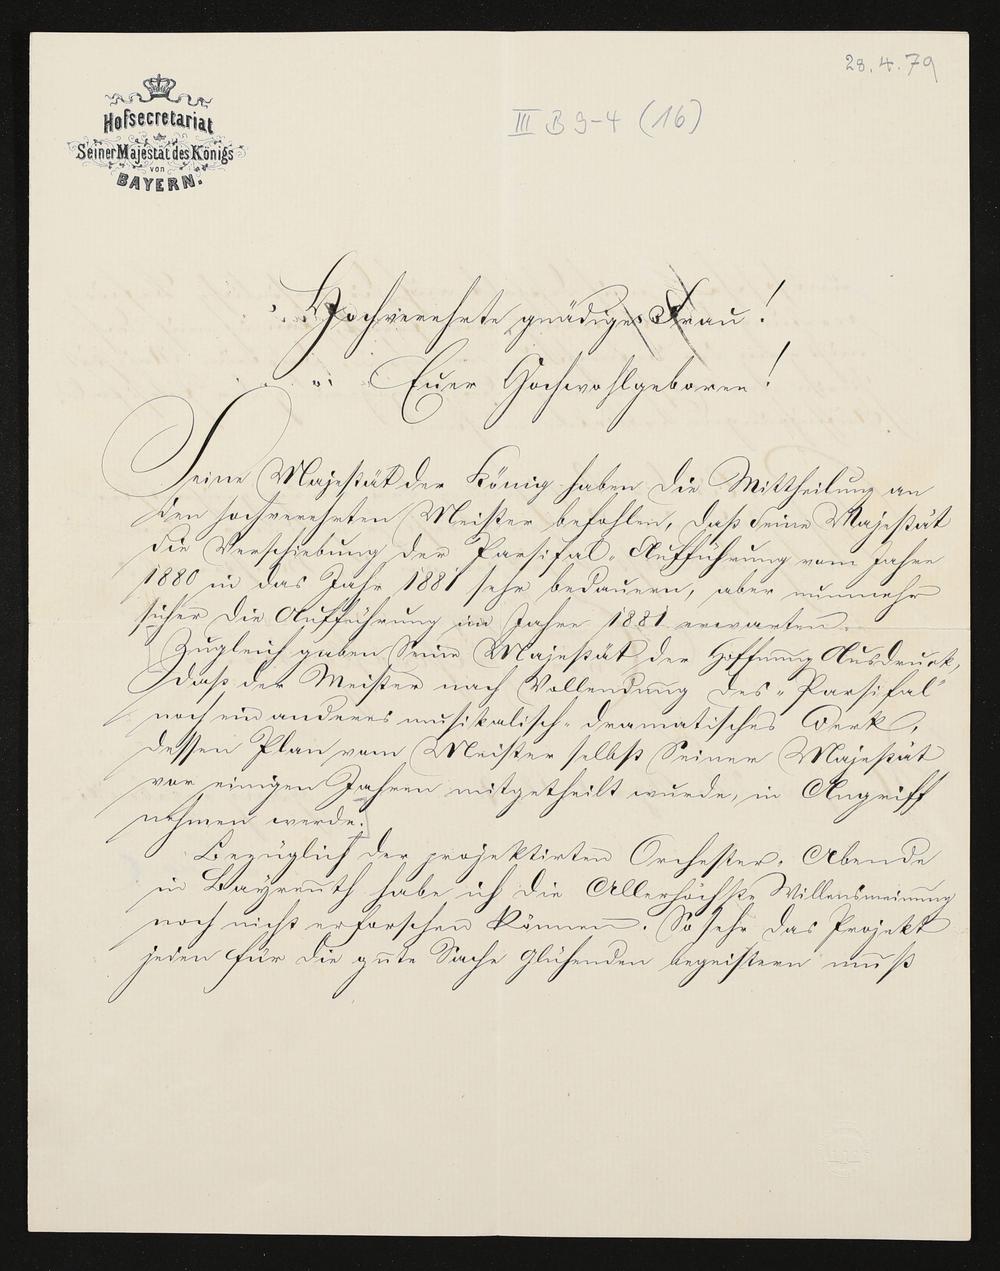 28.4.79
III B 9-4 (16)
Hofsecretariat
Seiner Majestät des Königs
von
BAYERN.
Hochverehrte gnädige Frau!
Euer Hochwohlgeboren!
Seine Majestät der König haben die Mittheilung an
den hochverehrten Meister befohlen, daß Seine Majestät
die Verschiebung der Parsifal-Aufführung vom Jahre
1880 in das Jahr 1881 sehr bedauern, aber nunmehr
sicher die Aufführung im Jahre 1881 erwarten.
Zugleich gaben Seine Majestät der Hoffnung Ausdruck,
daß der Meister nach Vollendung des „Parsifal“
noch ein anderes musikalisch-dramatisches Werk,
dessen Plan vom Meister selbst Seiner Majestät
vor einigen Jahren mitgetheilt wurde, in Angriff
nehmen werde.
Bezüglich der projektirten Orchester-Abende
in Bayreuth habe ich die Allerhöchste Willensmeinung
noch nicht erforschen können. So sehr das Projekt
jeden für die gute Sache Glühenden begeistern muß